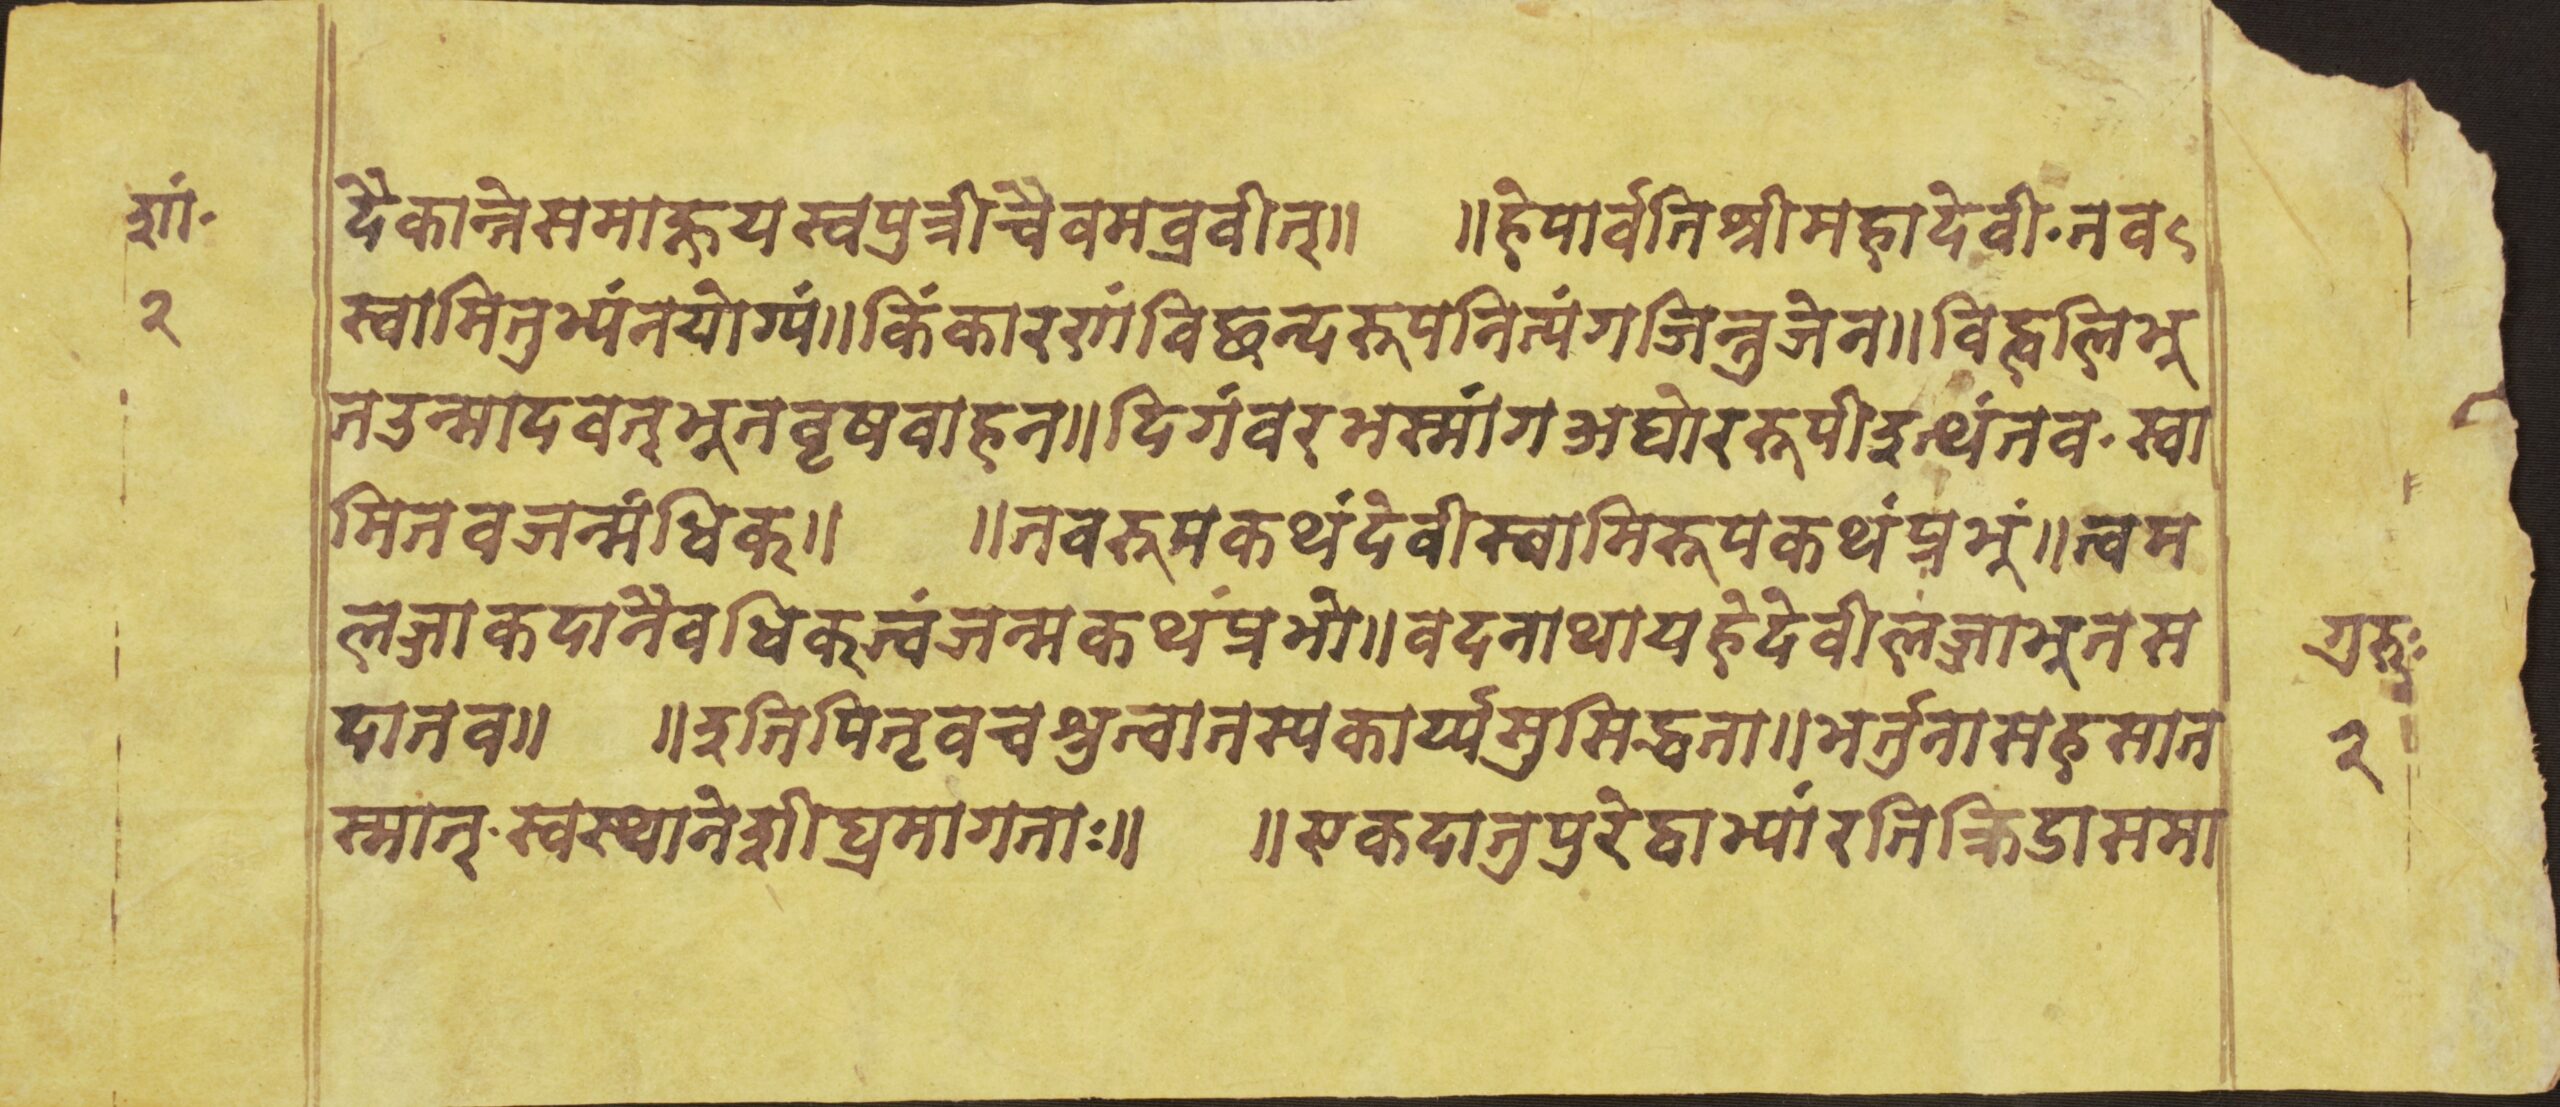 शां·
२
दैकान्तेसमाह्तयस्वपुत्रीचैवमब्रवीत्॥ ॥हेपार्वतिश्रीमहादेवी·तवऽ
स्वामितुभ्यंनयोग्यं॥किंकारणंविछन्दरूपनित्यंगजितुजेन॥विह्वलिभू
तउन्मादवत्भूतवृषवाहन॥दिगंवरभस्मांगअघोररूपीइत्थंतव·स्वा
मितवजन्मंधिक्॥ ॥तवरूपकथंदेवीस्वामिरूपकथंप्रभुं॥त्वम
लज्जाकदानैवधिक्त्वंजन्मकथंप्रभो॥वदनाथायहेदेवीलज्जाभूतम
दातव॥ ॥इतिपितृवचश्रुत्वातस्यकार्य्यसुसिद्धता॥भर्तुनासहसात
स्मात्·स्वस्थानेशीघ्रमागताः॥ ॥एकदातुपुरेद्वाभ्यांरतिक्रिडासमा
गुरुः
२